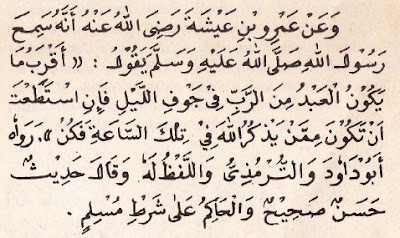 وَعَنْ عَمْرِو بْنِ عَيْشَةَ رَضِيَ اللهُ عَنْهُ أَنَّهُ سَمِعَ
رَسُولَ اللهِ صَلَّى اللهُ عَلَيْهِ وَسَلَّمَ يَقُوْلُ : «أَقْرَبُ مَا
يَكُوْنُ الْعَبْدُ مِنَ الرَّبِّ فِيْ جَوْفِ اللَّيْلِ فَإِنِ اسْتَطَعْتَ
اَنْ تَكُوْنَ مِمَّنْ يَذْكُرُ اللهَ فِيْ تِلْكَ السَّاعَةِ فَكُنْ». رَوَاهُ
أَبُوْ دَاوُدَ وَالتُّرْمُذِيُّ وَاللَّفْظُ لَهُ وَقَالَ حَدِيْثٌ
حَسَنٌ صَحِيْحٌ وَالْحَاكِمُ عَلَى شَرْطِ مُسْلِمٍ .